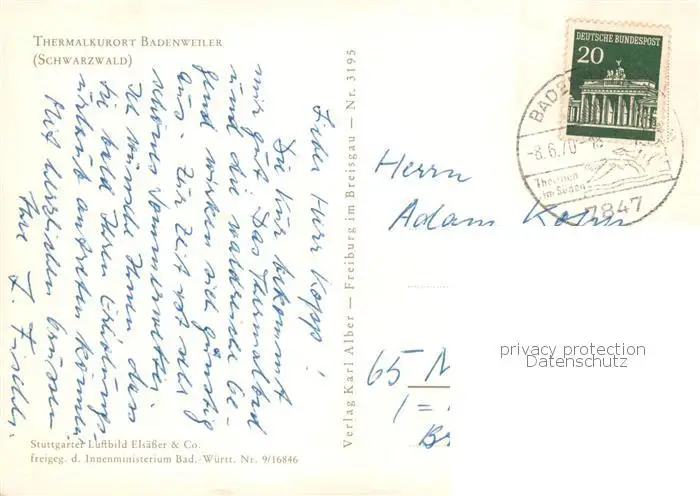 THERMALKURORT BADENWEILER
(SCHWARZWALD)
Lieber Herr Kopp!
Die Kur bekommt
mir gut. Das Thermalbad
und die waldreiche Ge-
gend wirken sich günstig
aus. Zur Zeit ist sehr
schönes Sommerwetter.
Ich wünsche Ihnen dass
Sie bald Ihren Erholungs-
urlaub antreten können.
Mit herzlichen Grüssen
Ihre L. Fischer.
Stuttgarter Luftbild Elsäßer & Co.
freigeg. d. Innenministerium Bad.-Württ. Nr. 9/16846
Verlag Karl Alber — Freiburg im Breisgau — Nr. 3195
DEUTSCHE BUNDESPOST
20
BADE
-8.6.70
Thermen
im Süden
7847
Herrn
Adam
65
privacy protection
Datenschutz